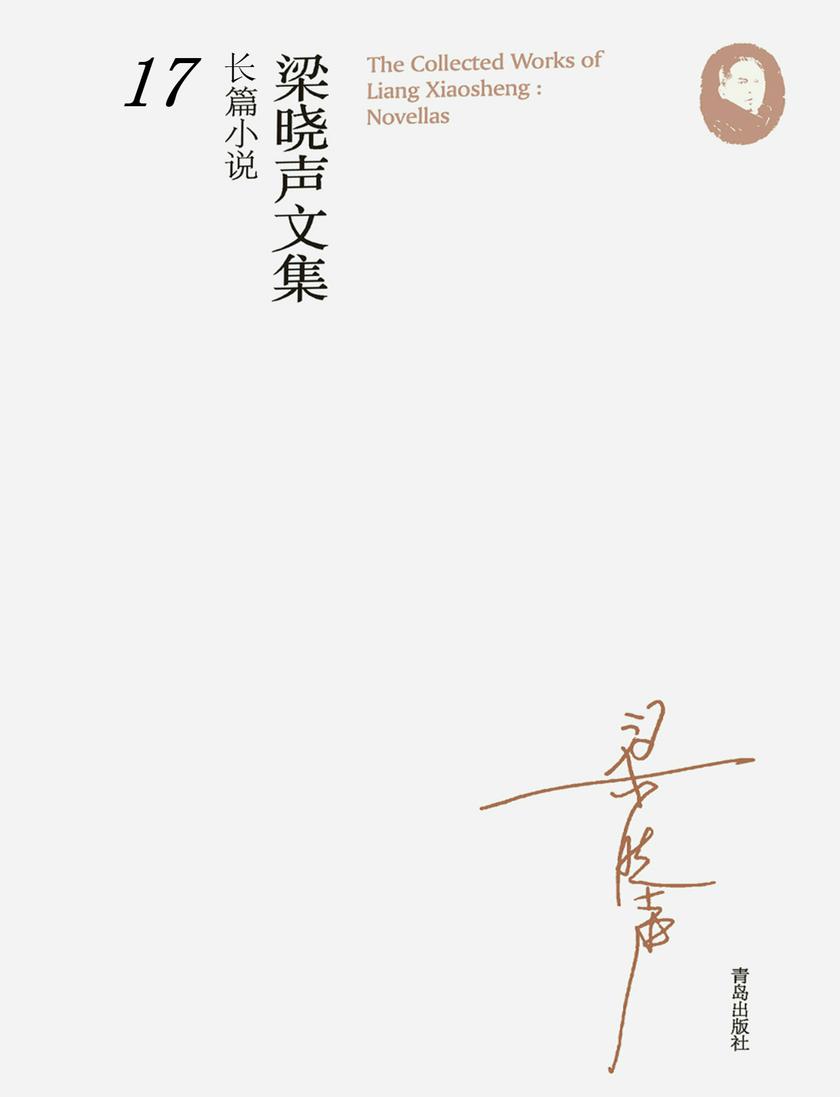 17
长篇小说
梁晓声文集
The Collected Works of
Liang Xiaosheng :
Novellas
梁晓声
青岛出版社